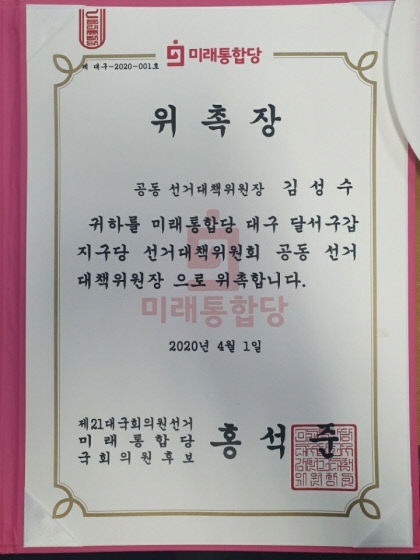 미래통합당
제 대구-2020-001호
위 촉 장
공동 선거대책위원장 김성수
귀하를 미래통합당 대구 달서구갑
지구당 선거대책위원회 공동 선거
대책위원장 으로 위촉합니다.
미래통합당
2020년 4월 1일
제21대국회의원선거
미래통합당
국회의원후보
홍석준